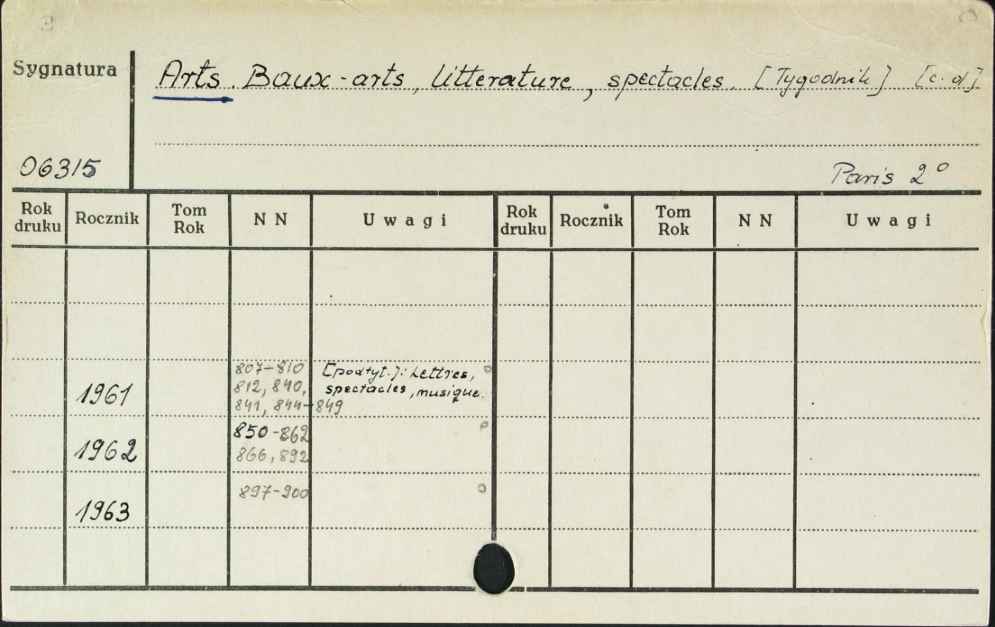 Sygnatura
Arts. Baux-arts, litterature, spectacles. [Tygodnik] [c. d].
06315
Paris 2°
Rok druku Rocznik Tom Rok N N Uwagi Rok druku Rocznik Tom Rok N N Uwagi
807-810 [podtyt.]: Lettres,
1961 812, 840, spectacles, musique.
841, 844-849
1962 850-862
866, 892
1963 897-900